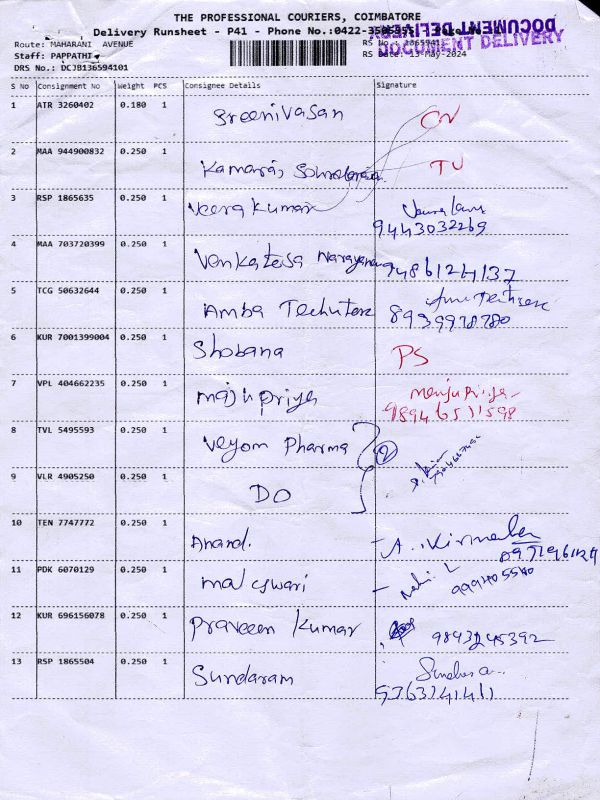 THE PROFESSIONAL COURIERS, COIMBATORE
Delivery Runsheet - P41 - Phone No.:0422-
Route: MAHARANI AVENUE
Staff: PAPPATHI
RS Date: 13-May-2024
DRS No.: DCJB136594101
DOCUMENT DELIVERY
DOCUMENT DELIVERY
S No Consignment No Weight PCS Consignee Details Signature
1 ATR 3260402 0.180 1 Sreenivasan CN
2 MAA 944900832 0.250 1 Kamaraj TV
3 RSP 1865635 0.250 1 Veera Kumar
9443032269
4 MAA 703720399 0.250 1 Venkatesa Narayanan 9486124137
5 TCG 50632644 0.250 1 Amba
8939978780
6 KUR 7001399004 0.250 1 Shobana PS
7 VPL 404662235 0.250 1 Manju priya
Manju Priya
98946511598
8 TVL 5495593 0.250 1 Veyom Pharma
2
9 VLR 4905250 0.250 1 DO
10 TEN 7747772 0.250 1 Anand.
11 PDK 6070129 0.250 1 maleswari
12 KUR 696156078 0.250 1 Praveen Kumar 9893245392
13 RSP 1865504 0.250 1 Sundaram
9363141411